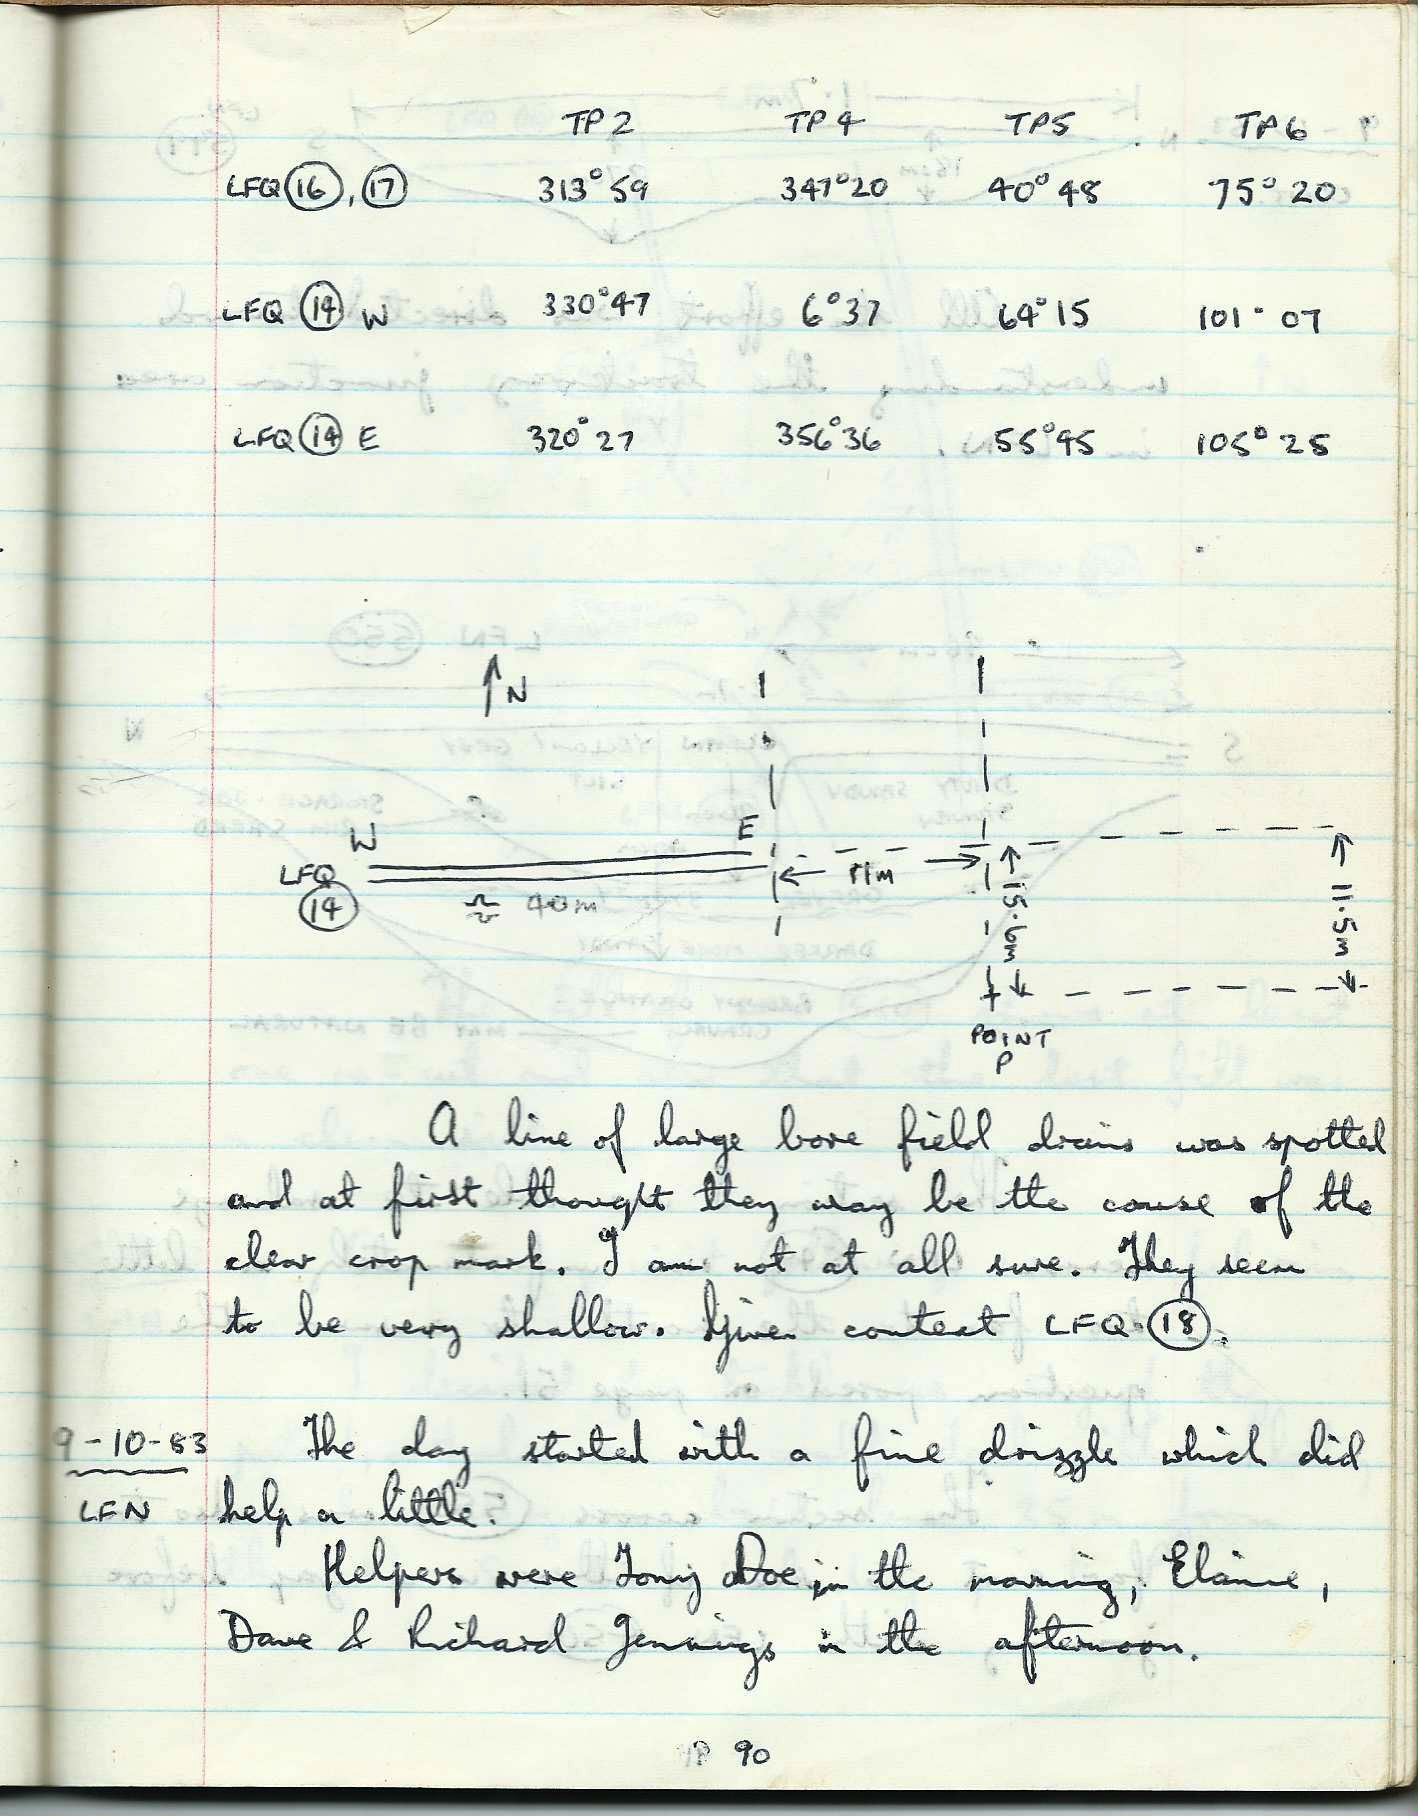 TP2 TP4 TP5 TP6
LFQ 16, 17 313°59 347°20 40°48 75°20
LFQ 14 W 330°47 6°37 64°15 101°07
LFQ 14 E 320°27 356°36 55°45 105°25
N
W E
LFQ
14
≈ 40m
11m
15.6m
11.5m
POINT
P
A line of large bore field drains was spotted
and at first thought they may be the cause of the
clear crop mark. I am not at all sure. They seem
to be very shallow. Given context LFQ 18.
9-10-83 The day started with a fine drizzle which did
LFN help a little.
Helpers were Tony Doe in the morning, Elaine,
Dave & Richard Jennings in the afternoon.
90